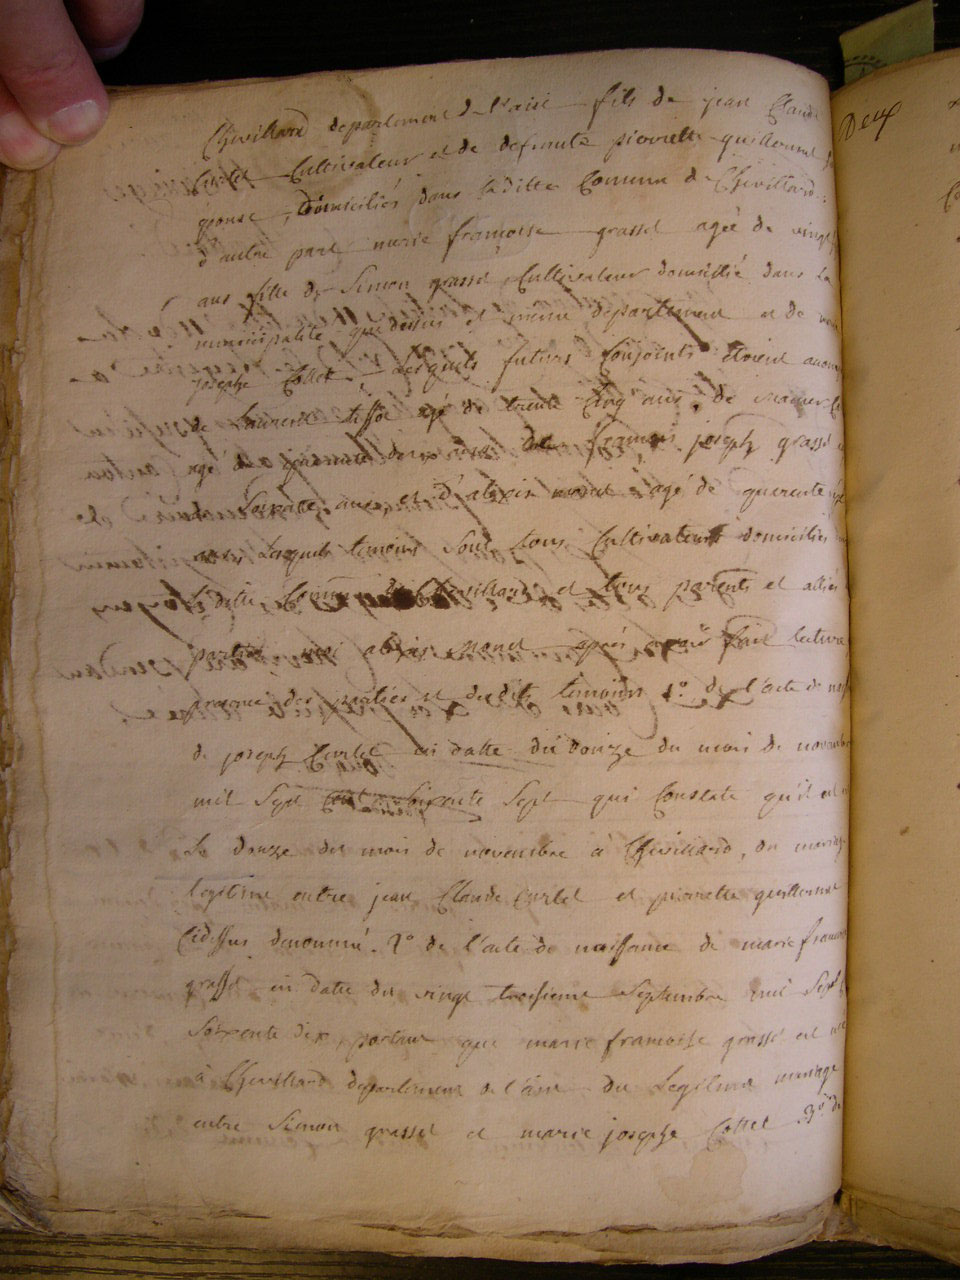 Chevillard departement de l'aisé fils de jean Claude
Curlet Cultivateur et de defeunte pierrette guillermet
épouse, Domiciliés dans laditte Commune de Chevillard :
d'autre part marie francoise grasset agée de vingt
ans fille de Simon grasset Cultivateur domicillié dans la
municipalité que dessus et meme departement et de
josephe Collet, lesquels futurs Conjoints étoient
de Laurent tissot agé de trente Cinq ans, de
agé de quarente deux ans de francois joseph grasset
Soixante ans, et d'alexis monet agé de quarente
ans lesquels temoins Sont tous Cultivateurs domiciliés
laditte Commune de Chevillard et tous parents et alliés
parties moi alexis monet après avoir fait lecture
presence des parties et desdits temoins 1° de l'acte de
de joseph Curlet en datte du douze du mois de novembre
mil Sept Cent Soixente Sept qui Constate qu'il est
Le douze du mois de novembre à Chevillard, du mariage
legitime entre jean Claude Curlet et pierrette guillermet
Cidessus denommé. 2° de l'acte de naissance de marie francoise
grasset en date du vingt troisieme Septembre mil Sept
Soixente dix, porteur que marie francoise grasset est née
à Chevillard departement de l'ain du Legitime mariage
entre Simon grasset et marie josephe Collet 3° de
Deux